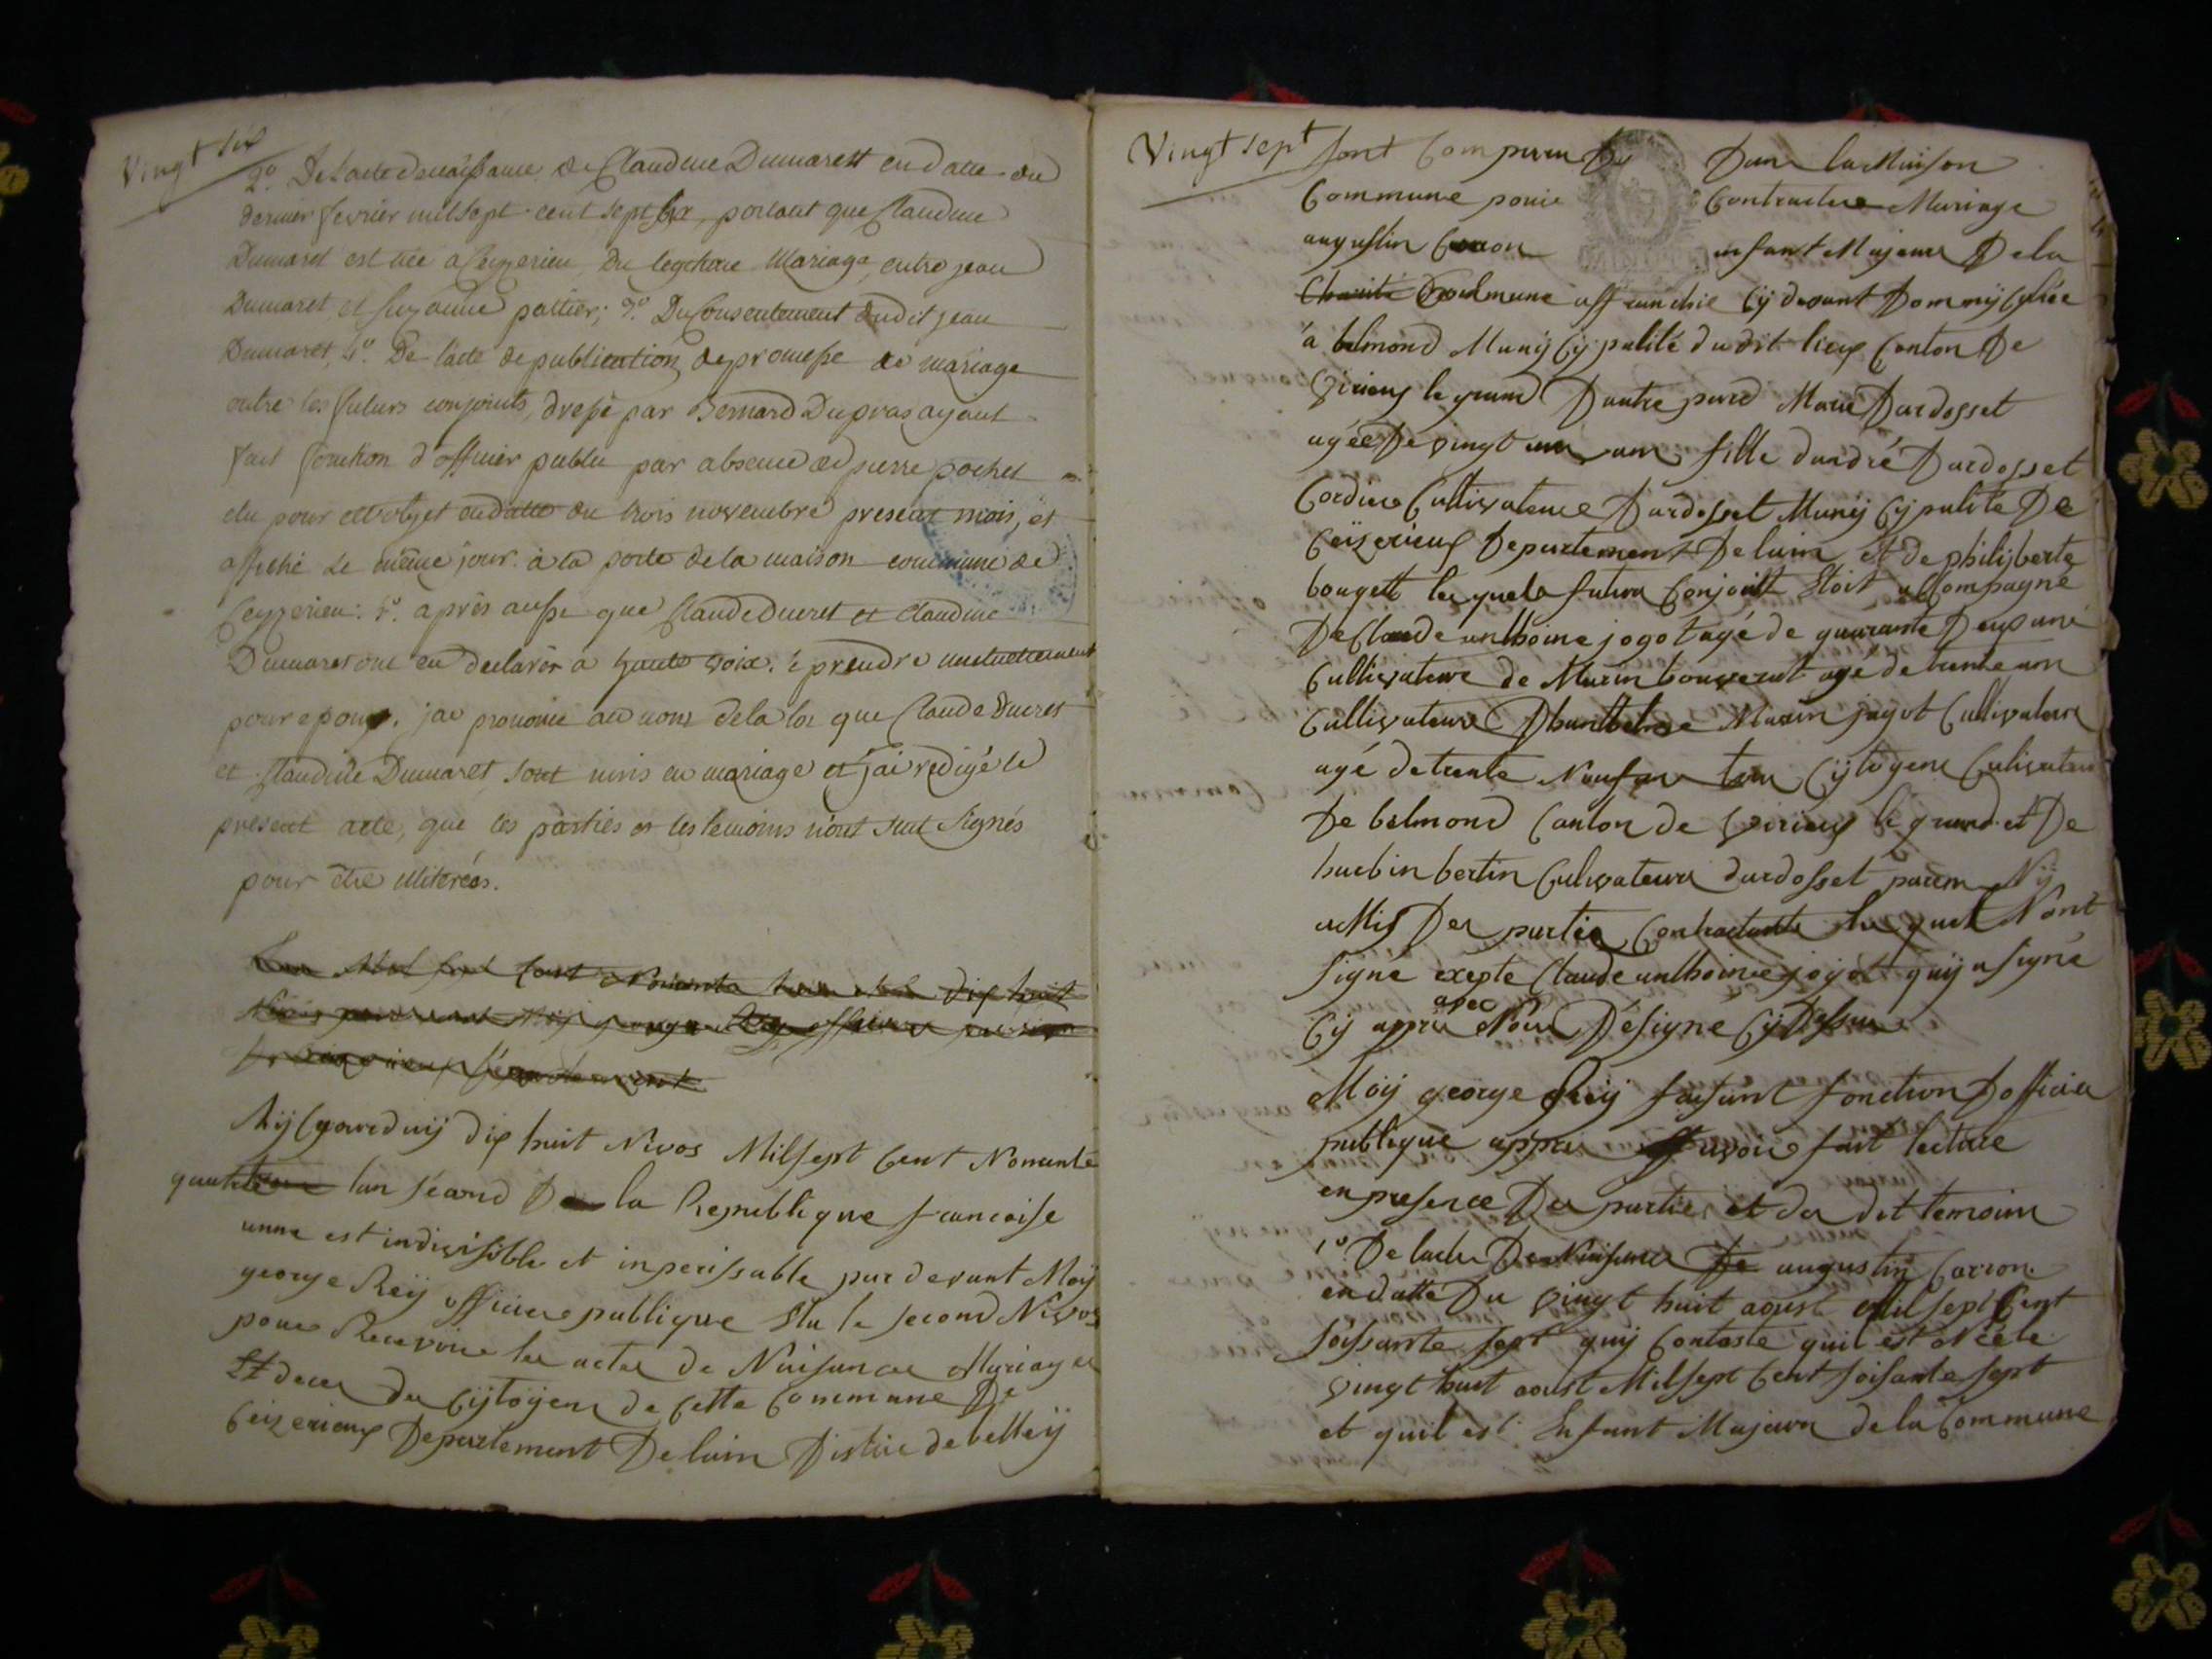 Vingt six
2º. De l'acte de naissance de Claudine Dumarest en datte du
dernier fevrier mil sept cent sept , portant que Claudine
Dumarest est née a Ceyzerieu, du legitime Mariage entre jean
Dumaret, et suzanne pattier; 3º. Du Consentement dudit jean
Dumaret, 4º. De l'acte de publication de promesse de mariage
entre les futurs conjoints, dressé par Bernard Dupras ayant
fait fonction d'officier public par absence de pierre pochet
elu pour cet objet en datte du trois novembre present mois, et
affiché le même jour à la porte de la maison commune de
Ceyzerieu: 5º. après aussi que Claude Ducret et Claudine
Dumarest ont eu declaré à haute voix. se prendre mutuellement
pour epoux, jai prononcé au nom de la loi que Claude Ducret
et Claudine Dumaret sont unis en mariage et j'ai redigé le
present acte, que les parties et les temoins n'ont sut signés
pour être illiterées.
Lan Mil sept Cent Nonante dix huit
Nivos pardevant Moij officier
Aijgourduij dix huit Nivos Mil sept Cent Nonante
quatre lan séand De la Republique francoise
unne est indivisible et inperissable par devant Moij
george Reij officier publique Elu le second Nivos
pour Recevoire les actes de Naisance Mariage
Et deces des Cijtoijens de Cette Commune De
Ceizerieux Departement De lain Distric de belleij
Vingt sept
sont Comparu Dans la Maison
Commune pouir Contracter Mariage
augustin Carron enfant Majeur De la
Charité Commune affranchie Cij devant Dommijcilié
à belmond Munijcijpalité du dit lieux Canton De
Virieux le grand Dautre pard Marie Dardosset
agée De vingt un ans fille dandré Dardosset
Cordier Cultivateur Dardosset Munijcijpalité De
Ceizerieux Departement De lain et de philijberte
bougett lesquels futurs Conjoint Etoit accompagné
De Claude anthoine jogot agé de quarante Deux ans
Cultivateur de Marin bouverat agé de trente ans
Cultivateur Marin jagot Cultivateur
agé de trente Neuf ans tous Cijtogens Culivateur
De belmond Canton de Virieux le grand et De
hurbin bertin Culivateur dardosset parem Nij
aMis Des parties Contractants lesquels Nont
signé exepte Claude anthoinie jogot quij a signé
Cij appres avec Nous Désigné Cij Dessus
Moij george Reij faisant fonction Dofficier
publique appres avoir fait lecture
en presence Des parties et des dit temoins
1º De lacte De Naisance De augustin Carron
en datte Du vingt huit aoust Mil sept Cent
soissante sept quij Contaste quil est Née le
vingt huit aoust Mil sept Cent soisante sept
et quil est Enfant Majeur de la Commune